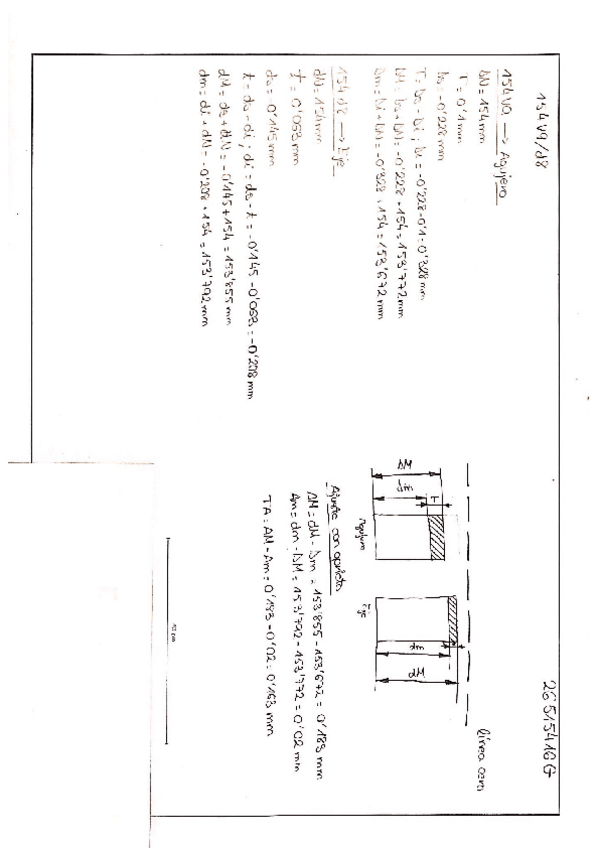 154 V9/d8
26515416G
154V9 → Agujero
DN = 154 mm
T = 0'1 mm
Ds = -0'228 mm
T = Ds - Di ; Di = -0'228 - 0'1 = 0'328 mm
DM = Ds + DN = -0'228 + 154 = 153'772 mm
Dm = Di + DN = -0'328 + 154 = 153'672 mm
→ Eje
dN = 154 mm
t = 0'063 mm
ds = -0'145 mm
t = ds - di ; di = ds - t = -0'145 - 0'063 = -0'208 mm
dM = ds + dN = -0'145 + 154 = 153'855 mm
dm = di + dN = -0'208 + 154 = 153'792 mm
línea cero
DM
Dm
T
Agujero
Eje
dm
dM
Ajuste con aprieto
AM = dM - Dm = 153'855 - 153'672 = 0'183 mm
Am = dm - DM = 153'792 - 153'772 = 0'02 mm
TA = AM - Am = 0'183 - 0'02 = 0'163 mm